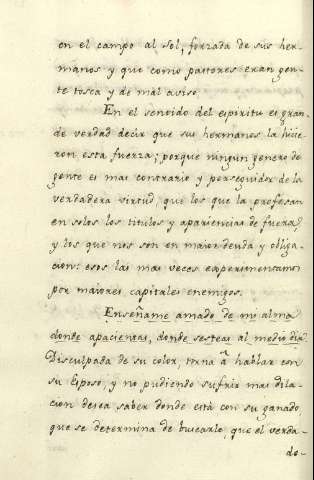 en el campo al sol, forzada de sus her-
manos y que como pastores eran gen-
te tosca y de mal aviso.
En el sentido del espiritu es gran-
de verdad decir que sus hermanos la hicie
ron esta fuerza; porque ningun genero de
gente es mas contrario y perseguidor de la
verdadera virtud, que los que la profesan
en solos los titulos y apariencias de fuera,
y los que nos son en maior deuda y obliga-
cion: esos las mas veces experimentamos
por maiores capitales enemigos.
Enseñame amado de mi alma
donde apacientas, donde sesteas al medio dia.
Disculpada de su color, torna â hablar con
su Esposo, y no pudiendo sufrir mas dila-
cion desea saber donde está con su ganado
que se determina de buscarle, que el verda-
de-